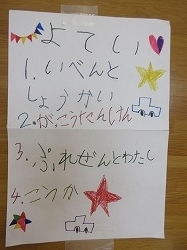 よてい
1.いべんと
しょうかい
2.がっこうたんけん
3.ぷれぜんとわたし
4.こうか